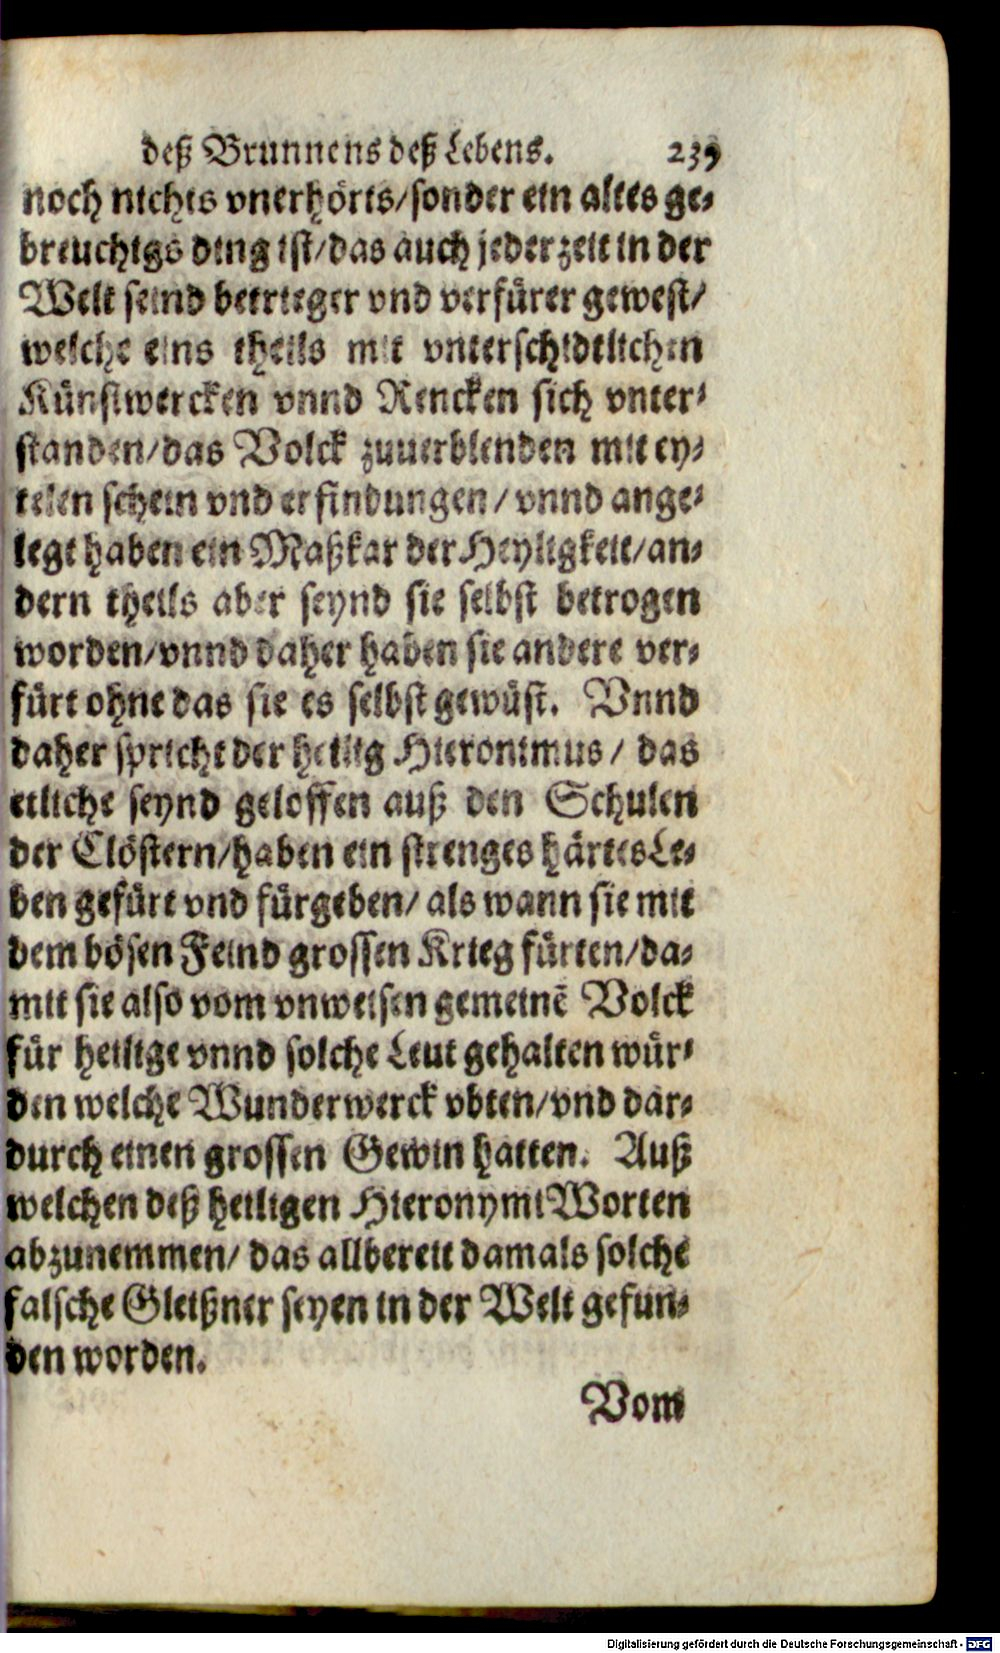 deß Brunnens deß Lebens. 239
noch nichts vnerhörts/sonder ein altes ge-
breuchigs ding ist/das auch jederzeit in der
Welt seind betrieger vnd verfürer gewest/
welche eins theils mit vnterschidtlichen
Künstwercken vnnd Rencken sich vnter-
standen/das Volck zuuerblenden mit ey-
telen schein vnd erfindungen/vnnd ange-
legt haben ein Maßkar der Heyligkeit/an-
dern theils aber seynd sie selbst betrogen
worden/vnnd daher haben sie andere ver-
fürt ohne das sie es selbst gewüst. Vnnd
daher spricht der heilig Hieronimus/ das
etliche seynd geloffen auß den Schulen
der Clöstern/haben ein strenges härtes Le-
ben gefürt vnd fürgeben/als wann sie mit
dem bösen Feind grossen Krieg fürten/da-
mit sie also vom vnweisen gemeinē Volck
für heilige vnnd solche Leut gehalten wür-
den welche Wunderwerck vbten/vnd dar-
durch einen grossen Gewin hatten. Auß
welchen deß heiligen Hieronymi Worten
abzunemmen/das allbereit damals solche
falsche Gleißner seyen in der Welt gefun-
den worden.
Vom
Digitalisierung gefördert durch die Deutsche Forschungsgemeinschaft - DFG